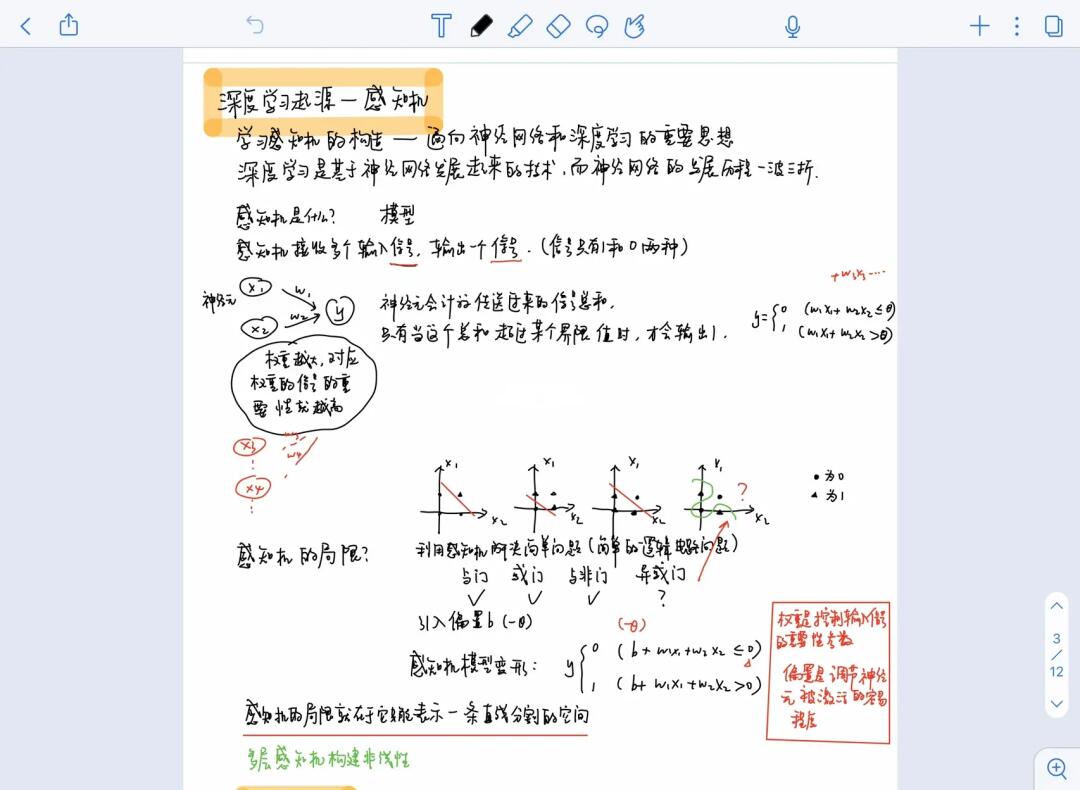 深度学习起源—感知机
学习感知机的构造 — 通向神经网络和深度学习的重要思想
深度学习是基于神经网络发展起来的技术,而神经网络的发展历程一波三折.
感知机是什么? 模型
感知机接收多个输入信号,输出一个信号.(信号只有1和0两种)
+w3x3....
神经元 x1 w1
x2 w2 y
神经元会计算传送过来的信号总和,
只有当这个总和超过某个界限值时,才会输出1.
y={0 (w1x1+w2x2≤θ)
1 (w1x1+w2x2>θ)
权重越大,对应
权重的信号的重
要性就越高
x3 w3
w4
x4
x1 x1 x1 x1
x2 x2 x2 ? x2
● 为0
▲ 为1
感知机的局限?
利用感知机解决简单问题(简单的逻辑电路问题)
与门 或门 与非门 异或门
✓ ✓ ✓ ?
引入偏置b(-θ)
(-θ)
感知机模型变形: y{0 (b+w1x1+w2x2≤0)
1 (b+w1x1+w2x2>0)
权重是控制输入信号
的重要性参数
偏置是调节神经
元被激活的容易
程度
感知机的局限就在于它只能表示一条直线分割的空间
多层感知机构建非线性
3
/
12